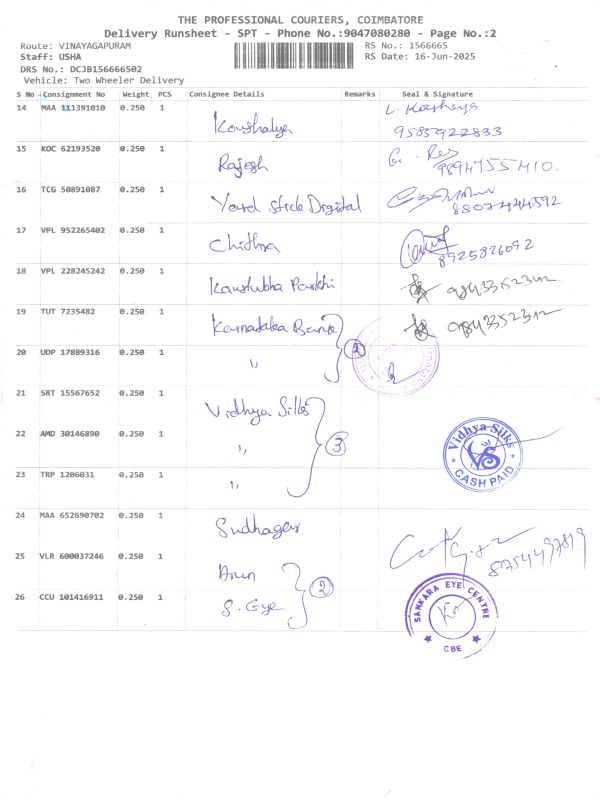 THE PROFESSIONAL COURIERS, COIMBATORE
Delivery Runsheet - SPT - Phone No.:9047080280 - Page No.:2
Route: VINAYAGAPURAM RS No.: 1566665
Staff: USHA RS Date: 16-Jun-2025
DRS No.: DCJB156666502
Vehicle: Two Wheeler Delivery
S No Consignment No Weight PCS Consignee Details Remarks Seal & Signature
14 MAA 111391010 0.250 1 Koushalya
9585922833
15 KOC 62193520 0.250 1 Rajesh
9894755410.
16 TCG 50891087 0.250 1 Yard Stick Digital
8807444592
17 VPL 952265402 0.250 1 Chithra
8925826092
18 VPL 228245242 0.250 1 Kaustubha
19 TUT 7235482 0.250 1 Karnataka Bank
20 UDP 17889316 0.250 1 " 2
21 SRT 15567652 0.250 1 Vidhya Silks
22 AMD 30146890 0.250 1 " 3 Vidhya Silks
VS
CASH PAID
23 TRP 1206031 0.250 1 "
24 MAA 652690702 0.250 1 Sudhagar
8754497819
25 VLR 600037246 0.250 1 Arun
26 CCU 101416911 0.250 1 S. Eye 2 SANKARA EYE CENTRE
CBE